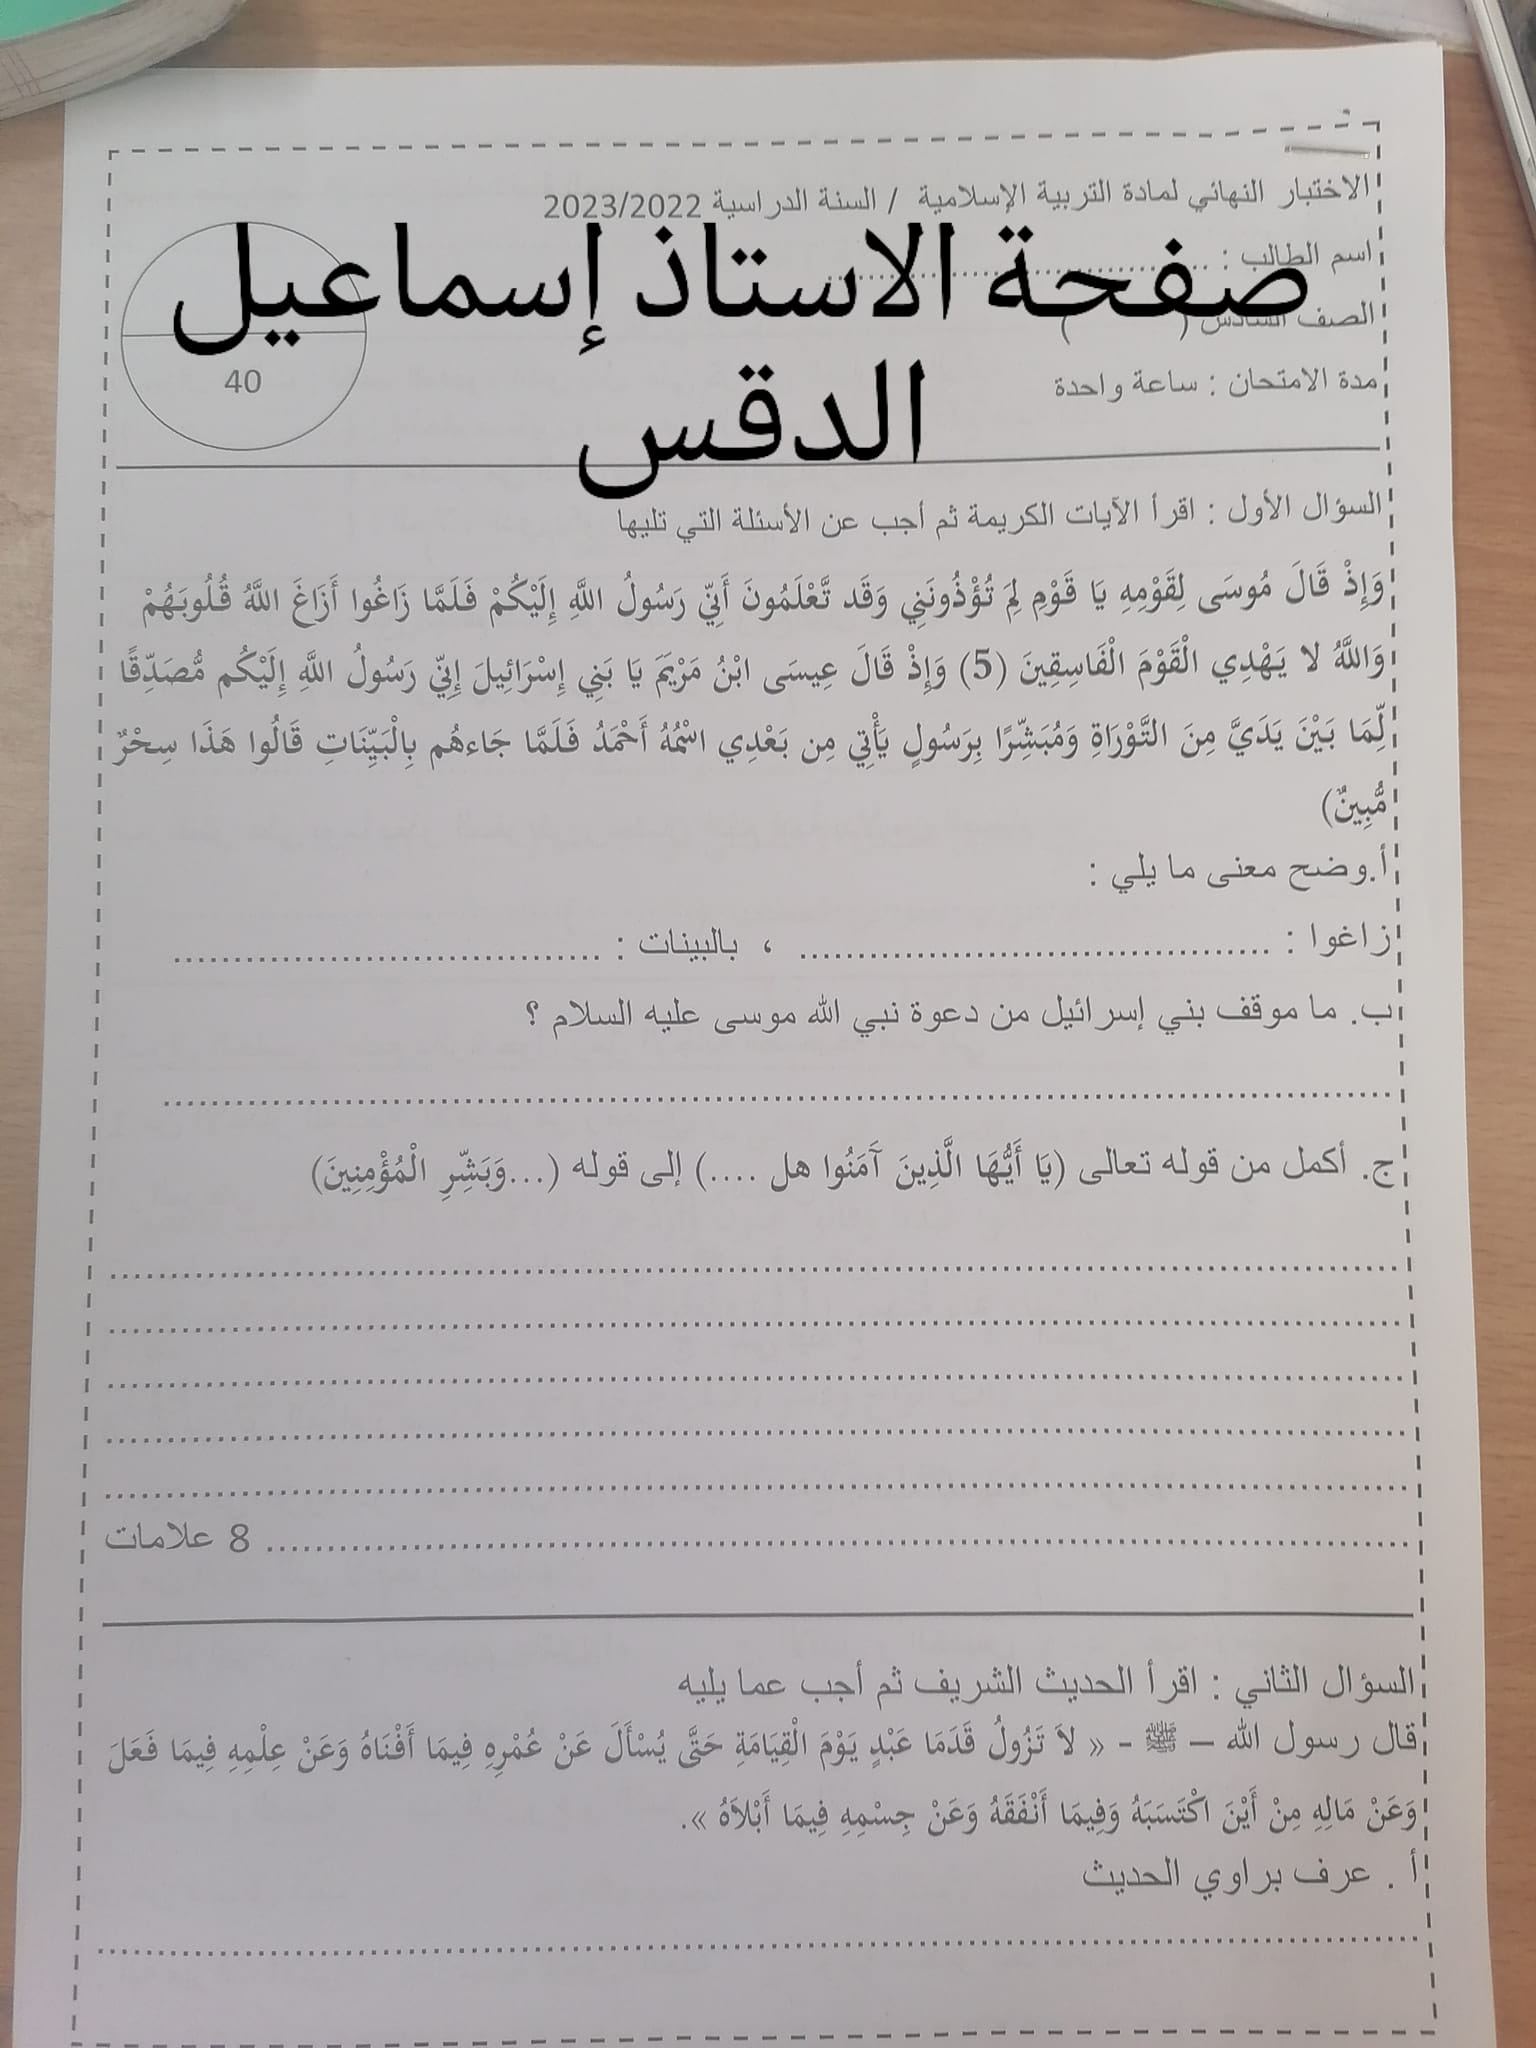 الاختبار النهائي لمادة التربية الإسلامية / السنة الدراسية 2023/2022
اسم الطالب : ........................
صفحة الاستاذ إسماعيل
الصف السادس ( )
40
مدة الامتحان : ساعة واحدة
الدقس
السؤال الأول : اقرأ الآيات الكريمة ثم أجب عن الأسئلة التي تليها
وَإِذْ قَالَ مُوسَى لِقَوْمِهِ يَا قَوْمِ لِمَ تُؤْذُونَنِي وَقَد تَّعْلَمُونَ أَنِّي رَسُولُ اللَّهِ إِلَيْكُمْ فَلَمَّا زَاغُوا أَزَاغَ اللَّهُ قُلُوبَهُمْ
وَاللَّهُ لا يَهْدِي الْقَوْمَ الْفَاسِقِينَ (5) وَإِذْ قَالَ عِيسَى ابْنُ مَرْيَمَ يَا بَنِي إِسْرَائِيلَ إِنِّي رَسُولُ اللَّهِ إِلَيْكُم مُّصَدِّقًا
لِّمَا بَيْنَ يَدَيَّ مِنَ التَّوْرَاةِ وَمُبَشِّرًا بِرَسُولٍ يَأْتِي مِن بَعْدِي اسْمُهُ أَحْمَدُ فَلَمَّا جَاءهُم بِالْبَيِّنَاتِ قَالُوا هَذَا سِحْرٌ
مُّبِينٌ)
أ.وضح معنى ما يلي :
زاغوا : ........................................ ، بالبينات : ....................................
ب. ما موقف بني إسرائيل من دعوة نبي الله موسى عليه السلام ؟
................................................................................
ج. أكمل من قوله تعالى (يَا أَيُّهَا الَّذِينَ آَمَنُوا هل ....) إلى قوله (...وَبَشِّرِ الْمُؤْمِنِينَ)
................................................................................
................................................................................
................................................................................
................................................................................
................................................................................
................................................................................ 8 علامات
السؤال الثاني : اقرأ الحديث الشريف ثم أجب عما يليه
قال رسول الله – ﷺ - « لاَ تَزُولُ قَدَمَا عَبْدٍ يَوْمَ الْقِيَامَةِ حَتَّى يُسْأَلَ عَنْ عُمْرِهِ فِيمَا أَفْنَاهُ وَعَنْ عِلْمِهِ فِيمَا فَعَلَ
وَعَنْ مَالِهِ مِنْ أَيْنَ اكْتَسَبَهُ وَفِيمَا أَنْفَقَهُ وَعَنْ جِسْمِهِ فِيمَا أَبْلاَهُ ».
أ . عرف براوي الحديث
................................................................................